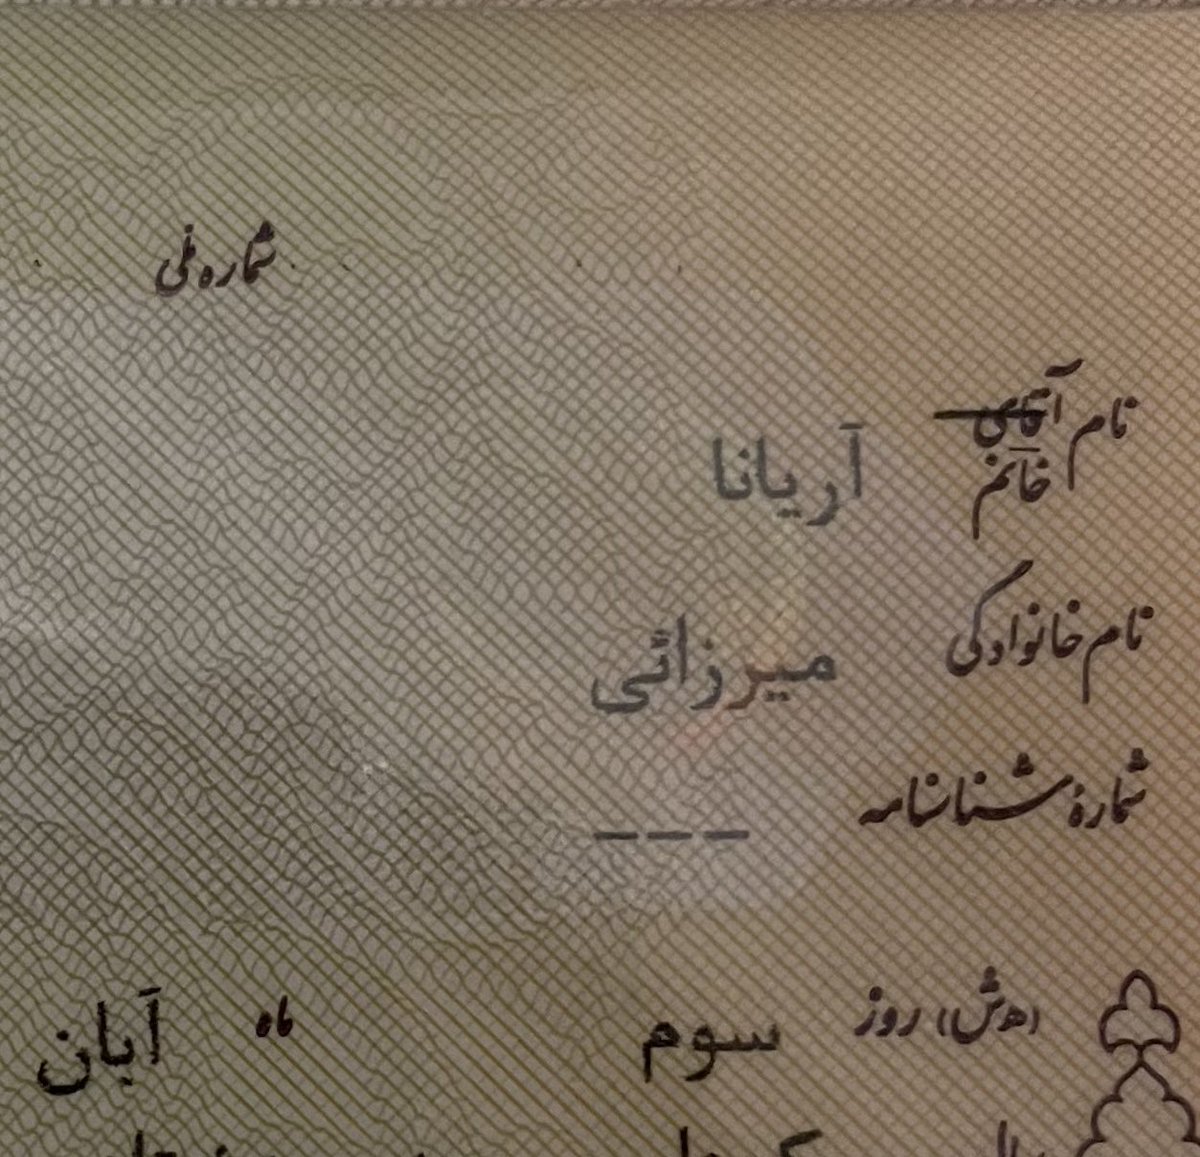 شماره ملی
نام آقای خانم آریانا
نام خانوادگی میرزائی
شمارهٔ شناسنامه ---
(هـ ش) روز سوم ماه آبان